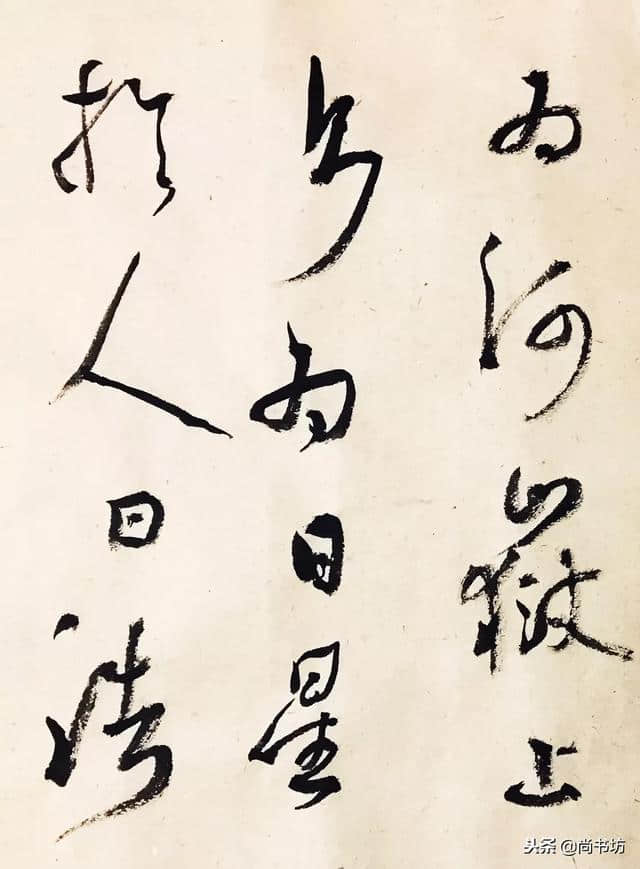 为河嶽上
则为日星
于人曰浩
头条@尚书坊